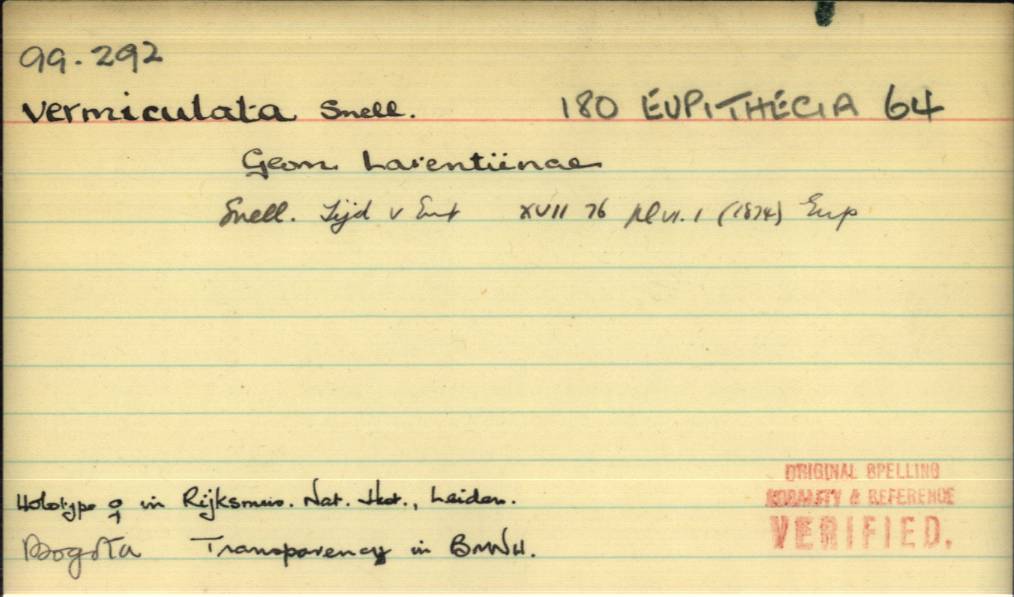 99.292
vermiculata Snell. 180 EUPITHECIA 64
Geom. Larentiinae
Snell. Tijd v Ent XVII 76 pl VI. 1 (1874) Eup
Holotype ♀ in Rijksmus. Nat. Hist., Leiden.
Bogota Transparency in BMNH.
ORIGINAL SPELLING
LOCALITY & REFERENCE
VERIFIED.